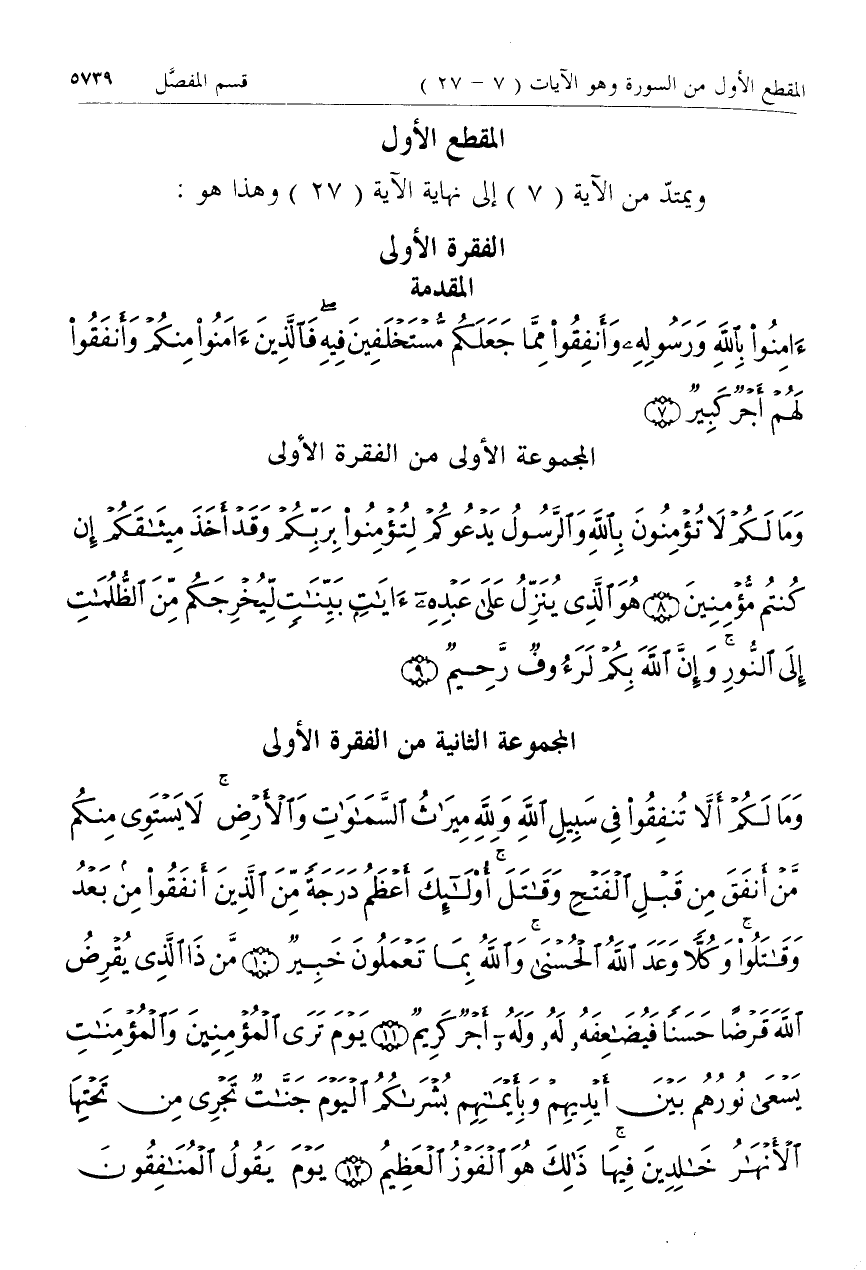 المقطع الأول من السورة وهو الآيات ( ٧ – ٢٧ ) قسم المفصَّل ٥٧٣٩
المقطع الأول
ويمتدّ من الآية ( ٧ ) إلى نهاية الآية ( ٢٧ ) وهذا هو :
الفقرة الأولى
المقدمة
ءَامِنُوا۟ بِٱللَّهِ وَرَسُولِهِۦ وَأَنفِقُوا۟ مِمَّا جَعَلَكُم مُّسْتَخْلَفِينَ فِيهِ ۖ فَٱلَّذِينَ ءَامَنُوا۟ مِنكُمْ وَأَنفَقُوا۟
لَهُمْ أَجْرٌ كَبِيرٌ ﴿٧﴾
المجموعة الأولى من الفقرة الأولى
وَمَا لَكُمْ لَا تُؤْمِنُونَ بِٱللَّهِ وَٱلرَّسُولُ يَدْعُوكُمْ لِتُؤْمِنُوا۟ بِرَبِّكُمْ وَقَدْ أَخَذَ مِيثَـٰقَكُمْ إِن
كُنتُم مُّؤْمِنِينَ ﴿٨﴾ هُوَ ٱلَّذِى يُنَزِّلُ عَلَىٰ عَبْدِهِۦٓ ءَايَـٰتٍۭ بَيِّنَـٰتٍ لِّيُخْرِجَكُم مِّنَ ٱلظُّلُمَـٰتِ
إِلَى ٱلنُّورِ ۚ وَإِنَّ ٱللَّهَ بِكُمْ لَرَءُوفٌ رَّحِيمٌ ﴿٩﴾
المجموعة الثانية من الفقرة الأولى
وَمَا لَكُمْ أَلَّا تُنفِقُوا۟ فِى سَبِيلِ ٱللَّهِ وَلِلَّهِ مِيرَٰثُ ٱلسَّمَـٰوَٰتِ وَٱلْأَرْضِ ۚ لَا يَسْتَوِى مِنكُم
مَّنْ أَنفَقَ مِن قَبْلِ ٱلْفَتْحِ وَقَـٰتَلَ ۚ أُو۟لَـٰٓئِكَ أَعْظَمُ دَرَجَةً مِّنَ ٱلَّذِينَ أَنفَقُوا۟ مِنۢ بَعْدُ
وَقَـٰتَلُوا۟ ۚ وَكُلًّا وَعَدَ ٱللَّهُ ٱلْحُسْنَىٰ ۚ وَٱللَّهُ بِمَا تَعْمَلُونَ خَبِيرٌ ﴿١٠﴾ مَّن ذَا ٱلَّذِى يُقْرِضُ
ٱللَّهَ قَرْضًا حَسَنًا فَيُضَـٰعِفَهُۥ لَهُۥ وَلَهُۥٓ أَجْرٌ كَرِيمٌ ﴿١١﴾ يَوْمَ تَرَى ٱلْمُؤْمِنِينَ وَٱلْمُؤْمِنَـٰتِ
يَسْعَىٰ نُورُهُم بَيْنَ أَيْدِيهِمْ وَبِأَيْمَـٰنِهِم بُشْرَىٰكُمُ ٱلْيَوْمَ جَنَّـٰتٌ تَجْرِى مِن تَحْتِهَا
ٱلْأَنْهَـٰرُ خَـٰلِدِينَ فِيهَا ۚ ذَٰلِكَ هُوَ ٱلْفَوْزُ ٱلْعَظِيمُ ﴿١٢﴾ يَوْمَ يَقُولُ ٱلْمُنَـٰفِقُونَ